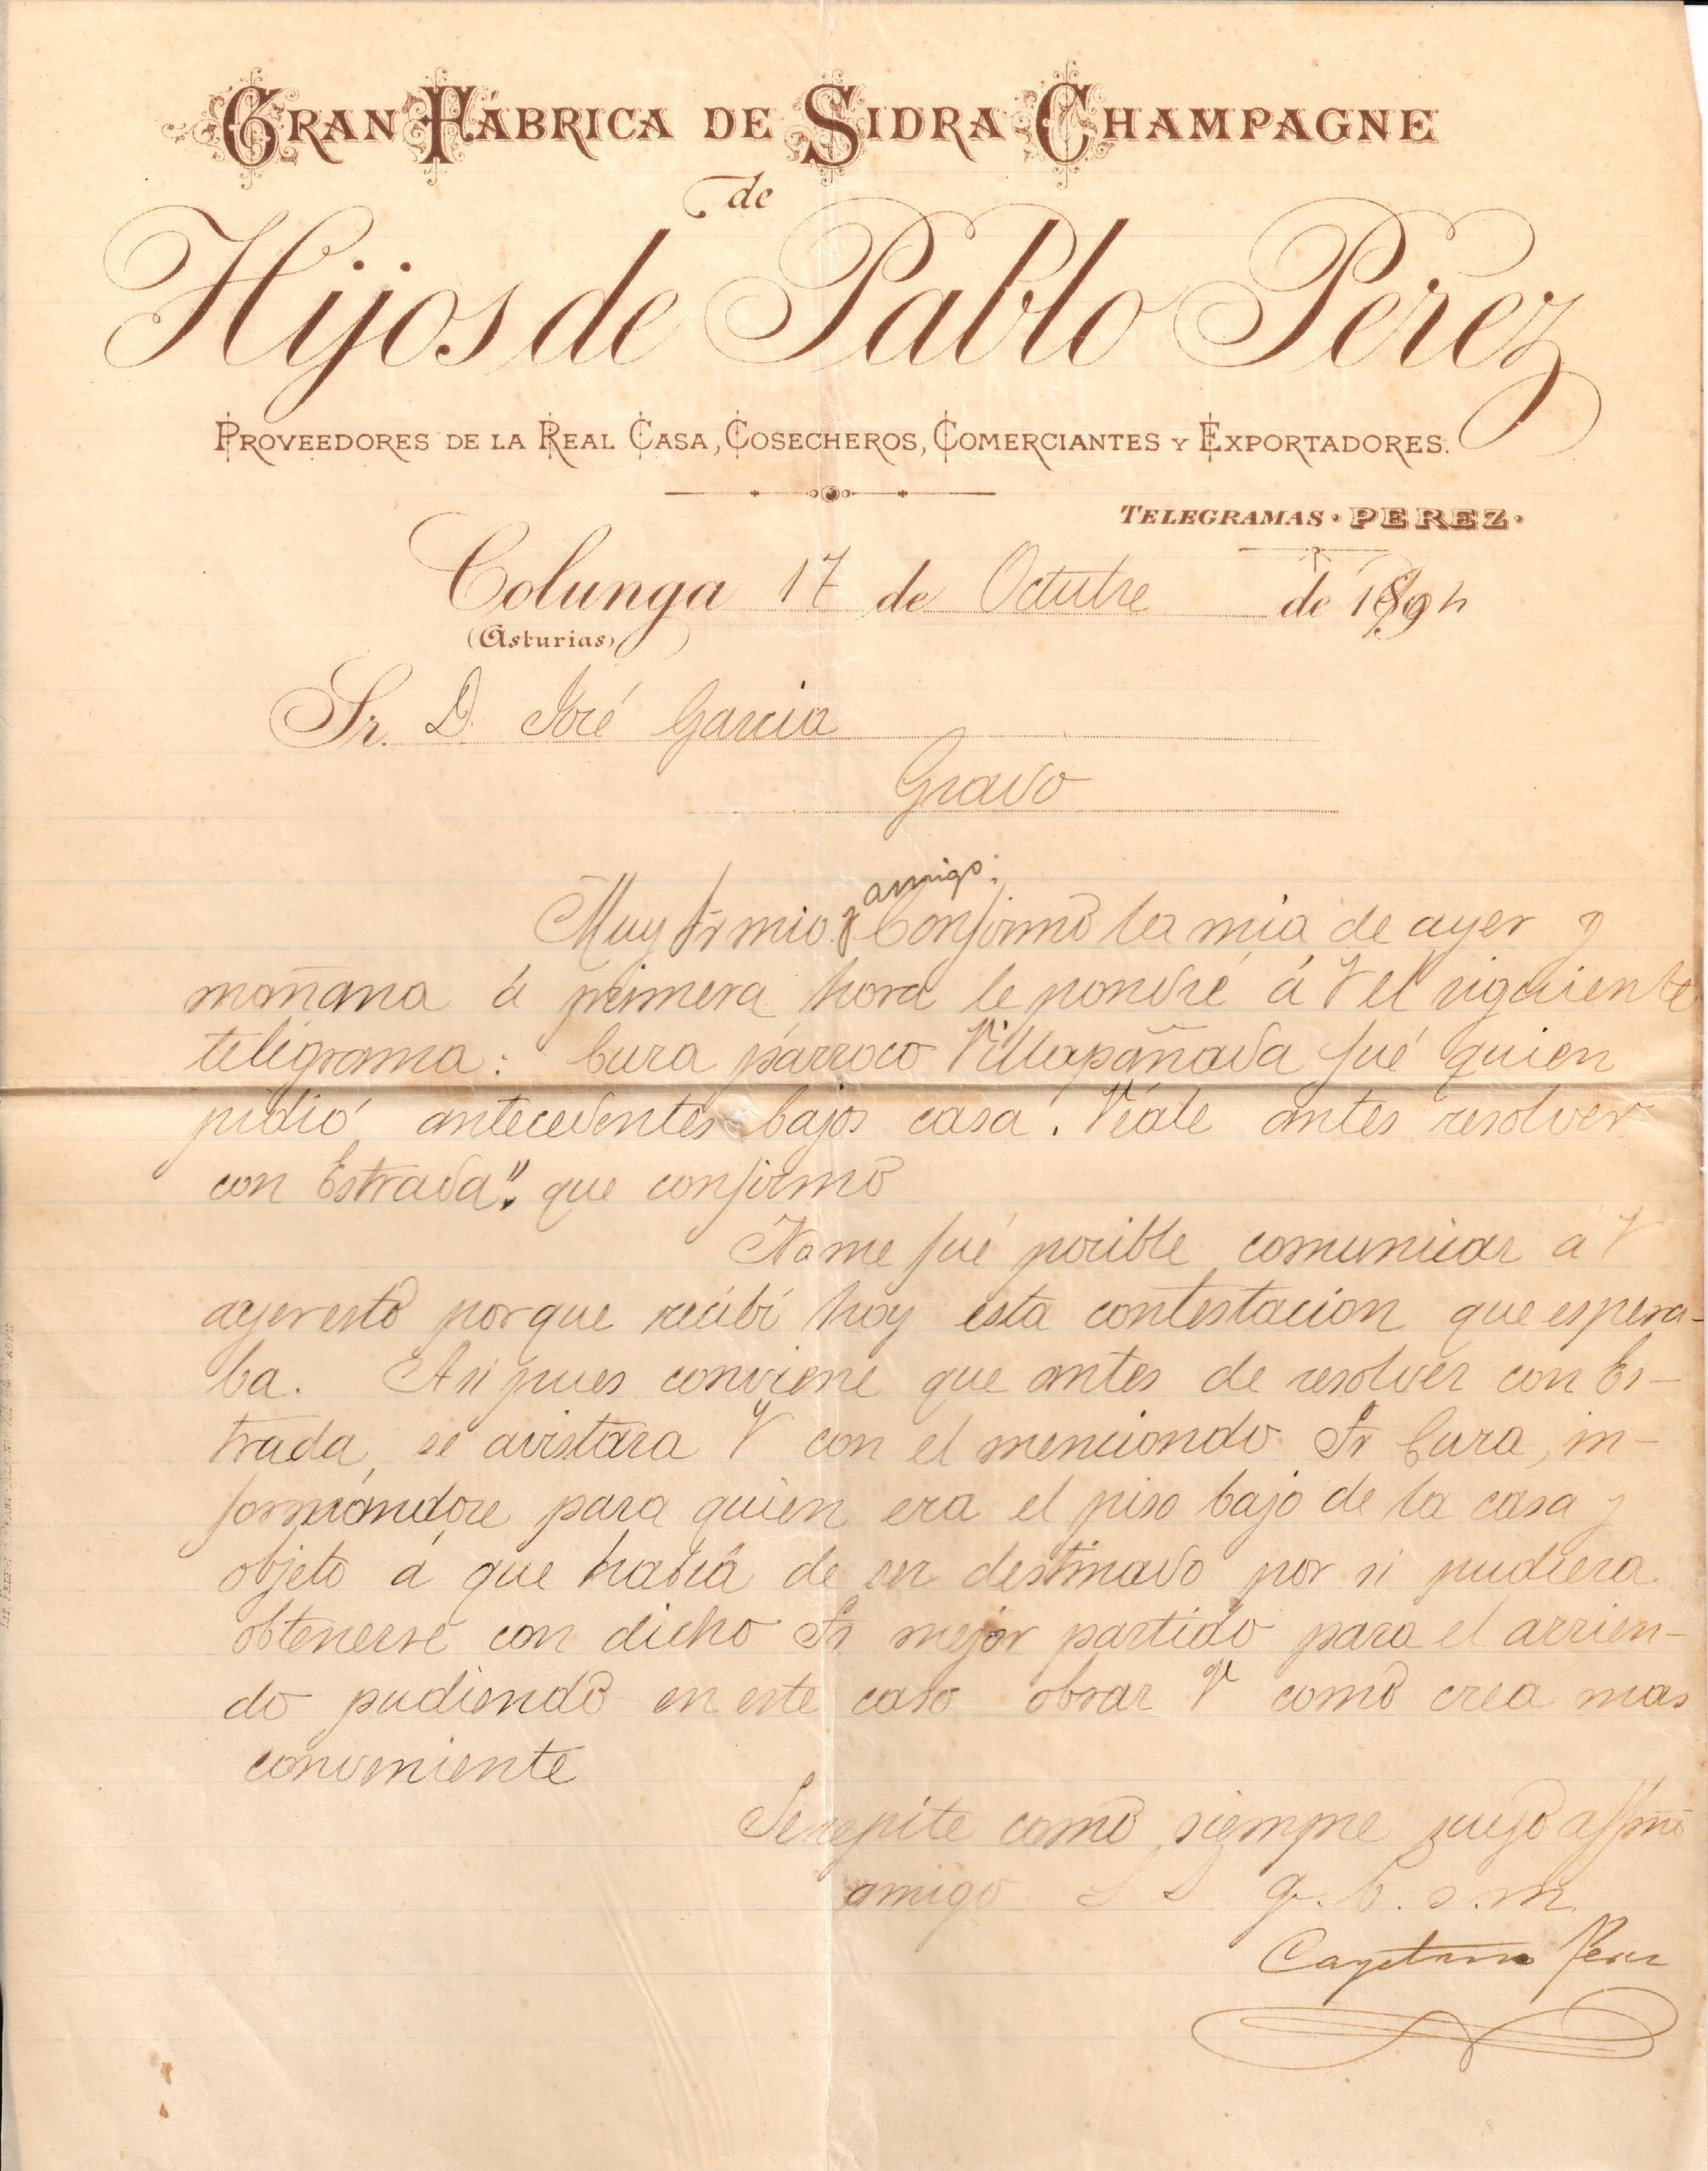 GRAN FÁBRICA DE SIDRA CHAMPAGNE
de
Hijos de Pablo Pérez
PROVEEDORES DE LA REAL CASA, COSECHEROS, COMERCIANTES Y EXPORTADORES.
TELEGRAMAS · PEREZ ·
Colunga 17 de Octubre de 1894
(Asturias)
Sr. D. José Garcia
Grado
amigo:
Muy Sr mio y Confirmo la mia de ayer y
mañana á primera hora le pondré á V el siguiente
telégrama: Cura párroco Villapañada fué quien
pidió antecedentes bajos casa. Véale antes resolver
con Estrada". que confirmo
No me fué posible comunicar á V
ayer esto porque recibi hoy esta contestacion que espera-
ba. Asi pues conviene que antes de resolver con Es-
trada, se avistara V con el menciondo Sr Cura, in-
formándose para quien era el piso bajo de la casa y
objeto á que habia de ser destinado por si pudiera
obtenerse con dicho Sr mejor partido para el arrien-
do pudiendo en este caso obrar V como crea mas
conveniente
Se repite como siempre suyo affmo
amigo S S q. b. s. m.
Cayetano Perez